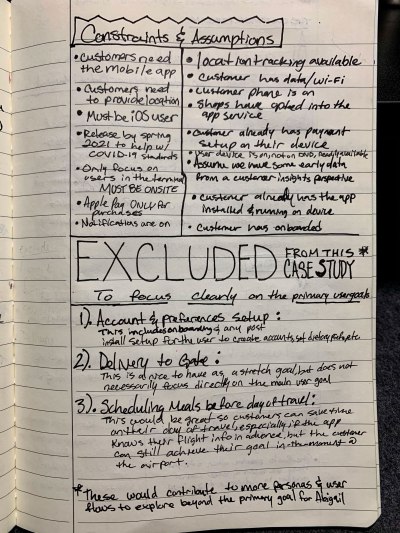 Constraints & Assumptions
• Customers need
the mobile app
• Customers need
to provide location
• Must be iOS user
• Release by spring
2021 to help w/
COVID-19 standards
• Only focus on
users in the terminal
MUST BE ONSITE
• Apple Pay ONLY for
purchases
• Notifications are on
• location tracking available
• Customer has data/wi-fi
• Customer phone is on
• Shops have opted into the
app service
• Customer already has payment
setup on their device
• User device is on, not on DND, readily available
• Assume we have some early data
from a customer insights perspective
• customer already has the app
installed & running on device
• customer has onboarded
EXCLUDED FROM THIS *
CASE STUDY
To focus clearly on the primary user goals
1). Account & preferences setup:
This includes onboarding & any post
install setup for the user to create accounts, set dietary prefs, etc.
2). Delivery to Gate:
This is a nice to have as, a stretch goal, but does not
necessarily focus directly on the main user goal
3). Scheduling Meals before day of travel:
This would be great so customers can save time
on their day of travel, especially if the app
knows their flight info in advance, but the customer
can still achieve their goal in-the-moment @
the airport.
* These would contribute to more personas & user
flows to explore beyond the primary goal for Abigail